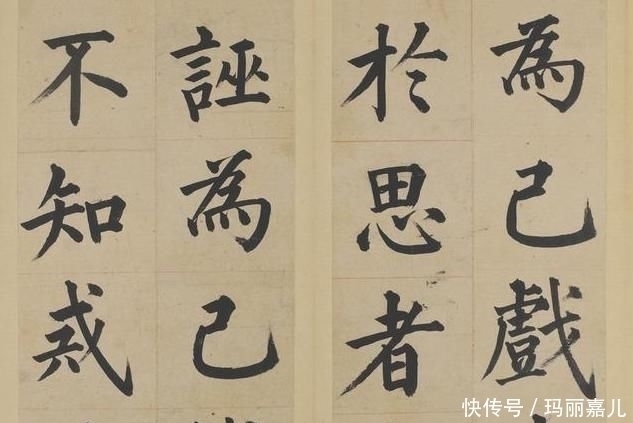 為己戲
於思者
誣為己
不知戒
快传号/玛丽嘉儿